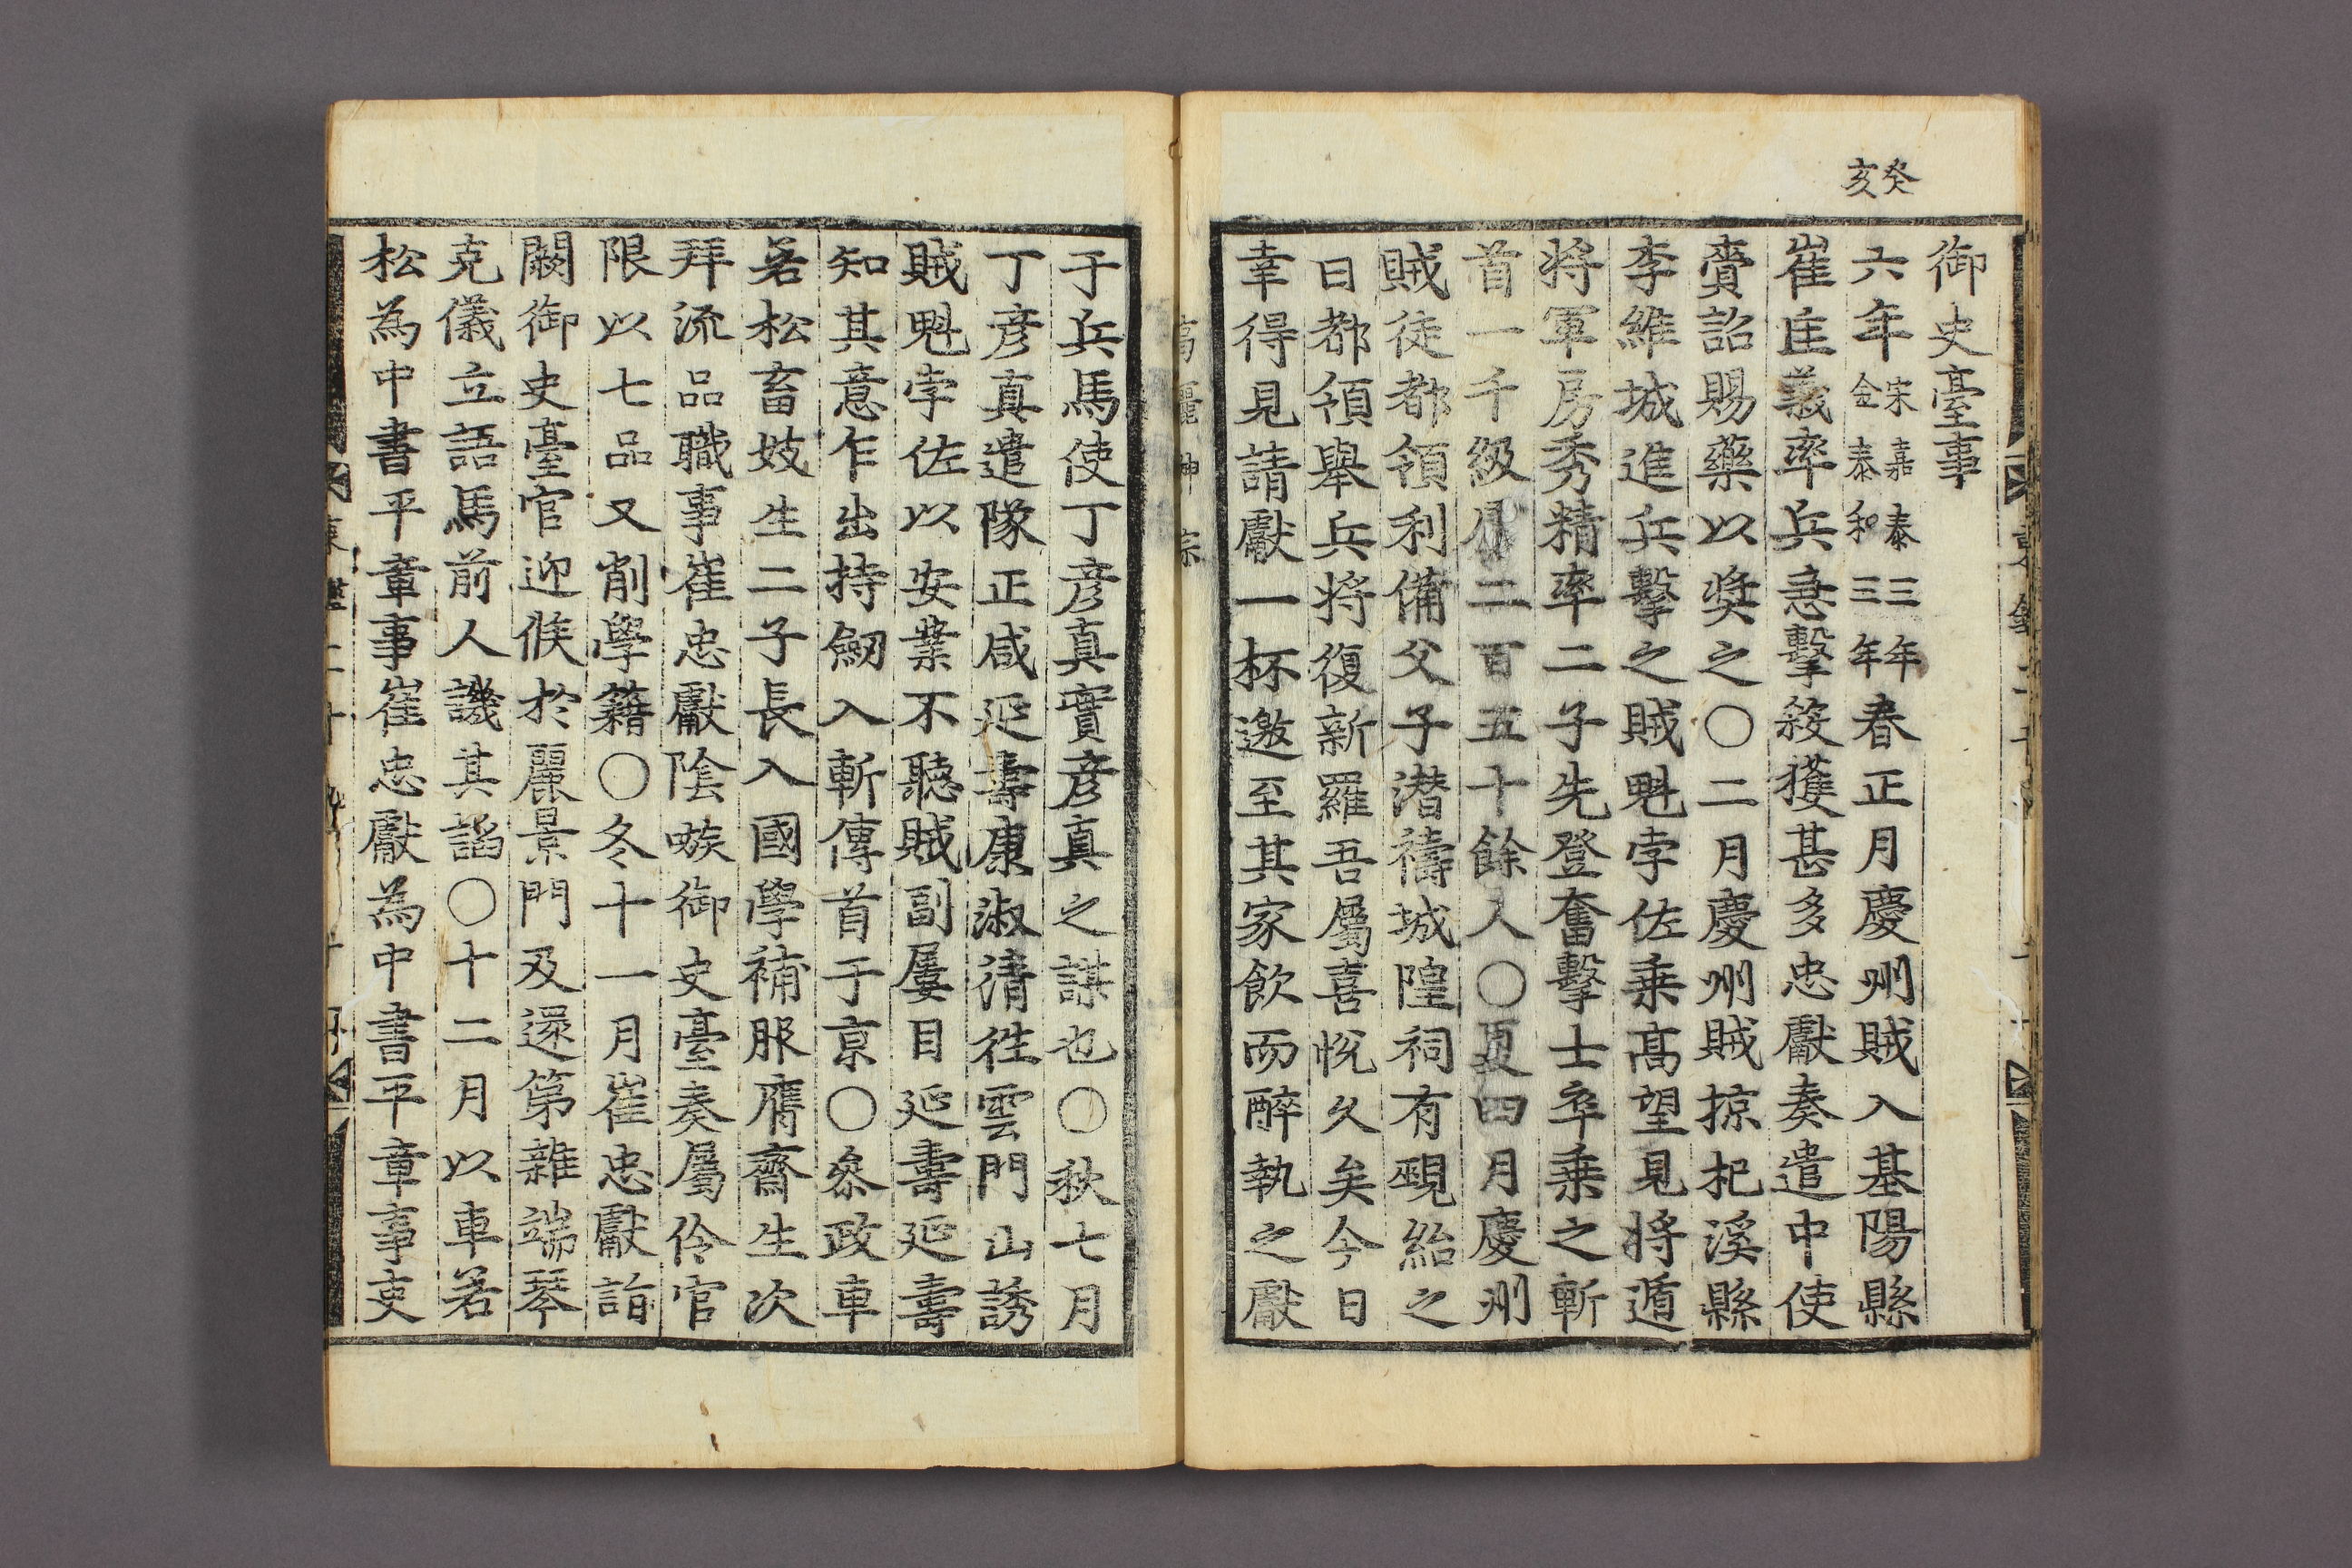 癸亥
御史臺事
六年宋嘉泰三年金泰和三年春正月慶州賊入基陽縣
崔匡義率兵急擊殺獲甚多忠獻奏遣中使
賫詔賜藥以奬之〇二月慶州賊掠杞溪縣
李維城進兵擊之賊魁孛佐乗高望見將遁
將軍房秀精率二子先登奮擊士卒乗之斬
首一千級二百五十餘人〇夏四月慶州
賊徒都領利備父子潜禱城隍祠有覡紿之
日都領舉兵將復新羅吾屬喜悅久矣今日
幸得見請獻一杯邀至其家飲而醉執之獻
于兵馬使丁彦真實彦真之謀也〇秋七月
丁彦真遣隊正咸延壽康淑清徃雲門山誘
賊魁孛佐以安業不聽賊副屢目延壽延壽
知其意乍出持劒入斬傳首于京〇叅政車
若松畜妓生二子長入國學補服膺齋生次
拜流品職事崔忠獻陰嗾御史臺奏屬伶官
限以七品又削學籍〇冬十一月崔忠獻詣
闕御史臺官迎候於麗景門及還第雜端琴
克儀立語馬前人譏其謟〇十二月以車若
松為中書平章事崔忠獻為中書平章事吏